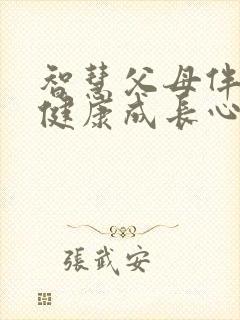 智慧父母伴
健康成长心
張武安